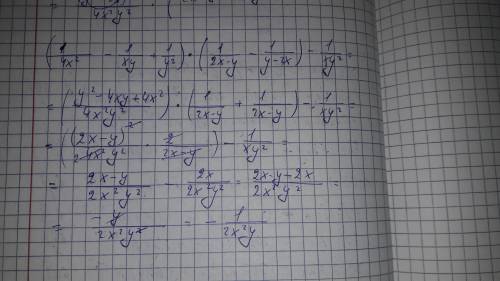 4x²y²
(1/4x² - 1/xy + 1/y²) · (1/2x-y - 1/y-2x) - 1/xy² =
= (y²-4xy+4x²/4x²y²) · (1/2x-y + 1/2x-y) - 1/xy² =
= ((2x-y)²/4x²y² · 2/2x-y) - 1/xy² =
= 2x-y/2x²y² - 2x/2x²y² = 2x-y-2x/2x²y² =
= -y/2x²y² = - 1/2x²y